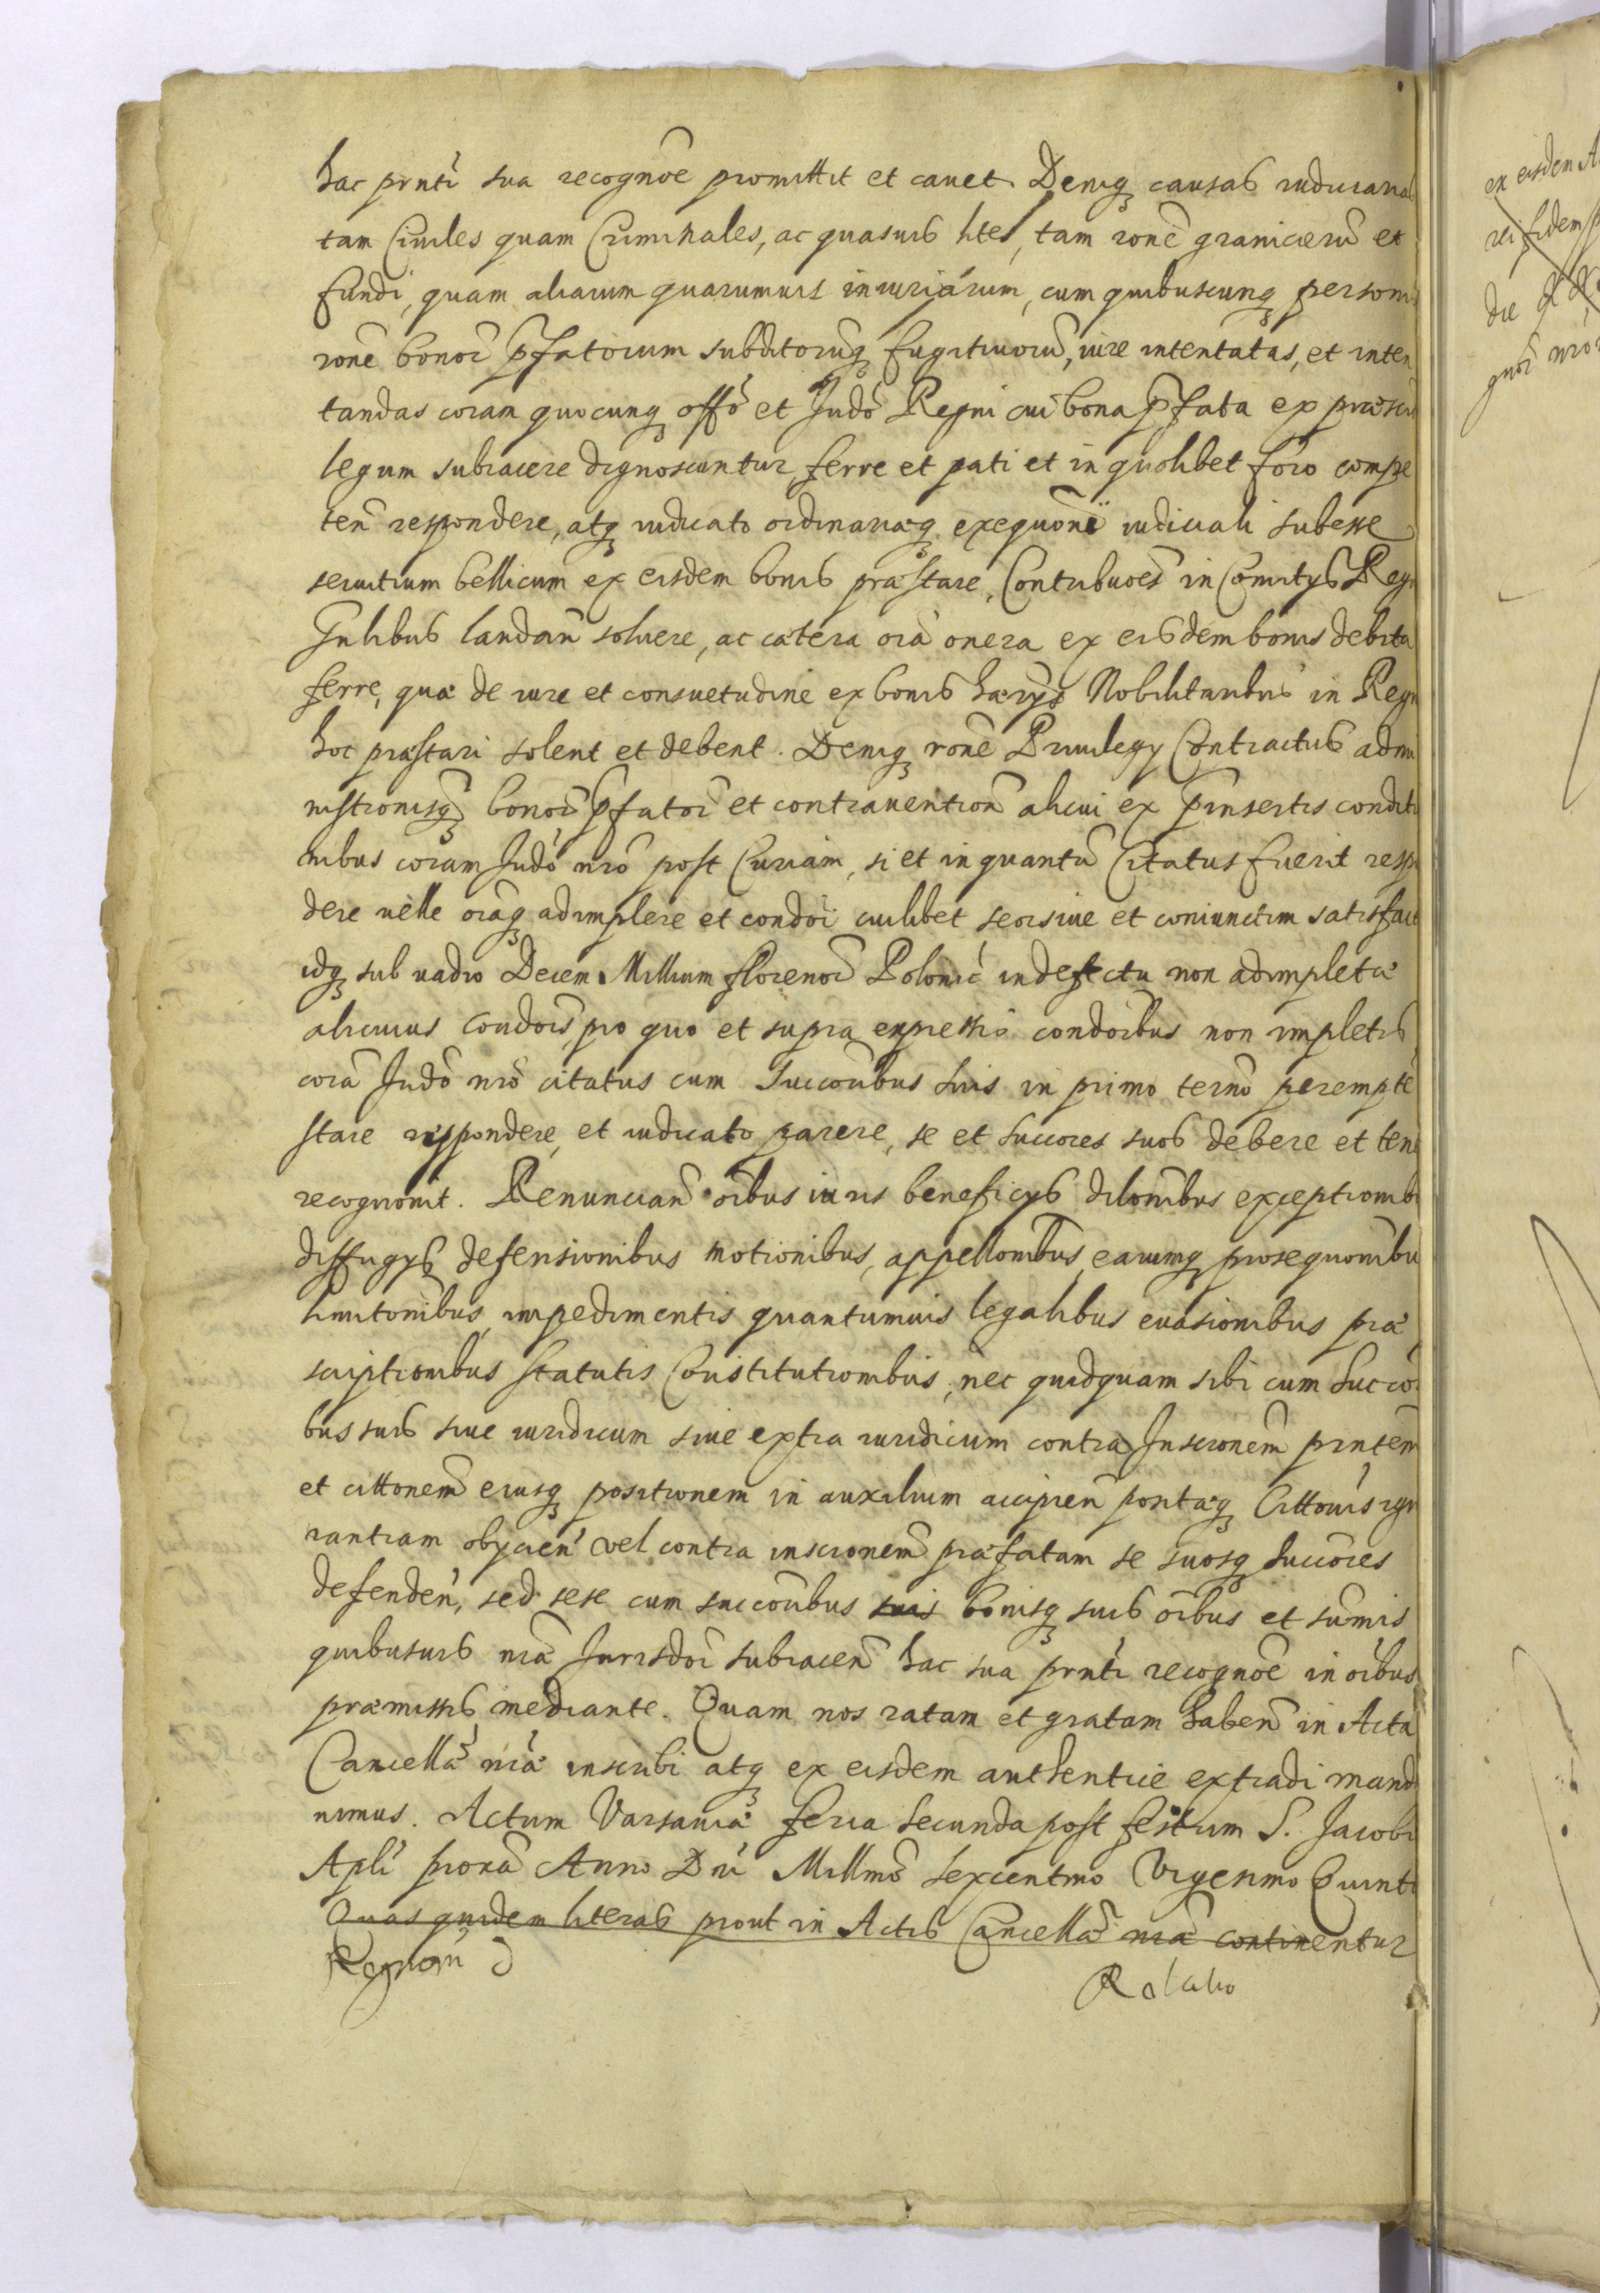 hac prnti sua recognoe promittit et cauet. Deniq causas iudiciarias
tam Ciuiles quam Criminales, ac quasuis lites, tam rone granicieru et
fundi, quam aliarum quarumuis iniuriarum, cum quibuscunq person
rone bonor pfatorum subditorumq fugitiuoru, iure intentatas, et inten
tandas coram quocunq offo et Judo Regni cui bona pfata ex præscr
legum subiacere dignoscuntur, ferre et pati et in quolibet foro compe
ten respondere, atq iudicato ordinariæq exequoni iudiciali subesse
seruitium bellicum ex eisdem bonis præstare, Contribuoes in Comitys Regn
Gnlibus laudan soluere, ac cætera oia onera ex eisdem bonis debita
ferre, quæ de iure et consuetudine ex bonis hærys Nobilitaribus in Regn
hoc præstari solent et debent. Deniq rone Priuilegy Contractus admi
nistronisq bonor pfator et contrauention alicui ex pinsertis conditi
nibus coram Judo nro post Curiam, si et in quantu Citatus fuerit respo
dere uelle oiaq adimplere et condoi cuilibet seorsiue et coniunctim satisfac
idq sub uadio Decem Millium florenor Polonic in defectu non adimpletæ
alicuius condois, pro quo et supra expressis condoibus non impletis
cora Judo nro citatus cum Succoribus suis in primo terno perempte
stare respondere, et iudicato parere, se et succores suos debere et ten
recognouit. Renuncian oibus iuris beneficys dilonibus exceptionib
diffugys defensionibus motionibus, appellonibus, earumq prosequonibu
limitonibus, impedimentis quantumuis legalibus euasionibus præ
scriptionibus statutis Constitutionibus, nec quidquam sibi cum Succo
bus suis siue iuridicum siue extra iuridicum contra Inscronem prntem
et cittonem eiusq positionem in auxilium accipien positæq Cittonis ign
rantiam obycien vel contra inscronem præfatam se suosq succores
defenden, sed sese cum succoribus suis bonisq suis oibus et sumis
quibusuis nræ Jurisdoi subiacen hac sua prnti recognoe in oibus
præmissis mediante. Quam nos ratam et gratam haben in Acta
Cancellæ nræ inscribi atq ex eisdem authentice extradi mand
nimus. Actum Varsauiæ feria secunda post festum S. Jacobi
Apli prona Anno Dni Millmo sexcentmo Vigesimo Quinto
Quas quidem literas prout in Actis Cancellæ nræ continentur